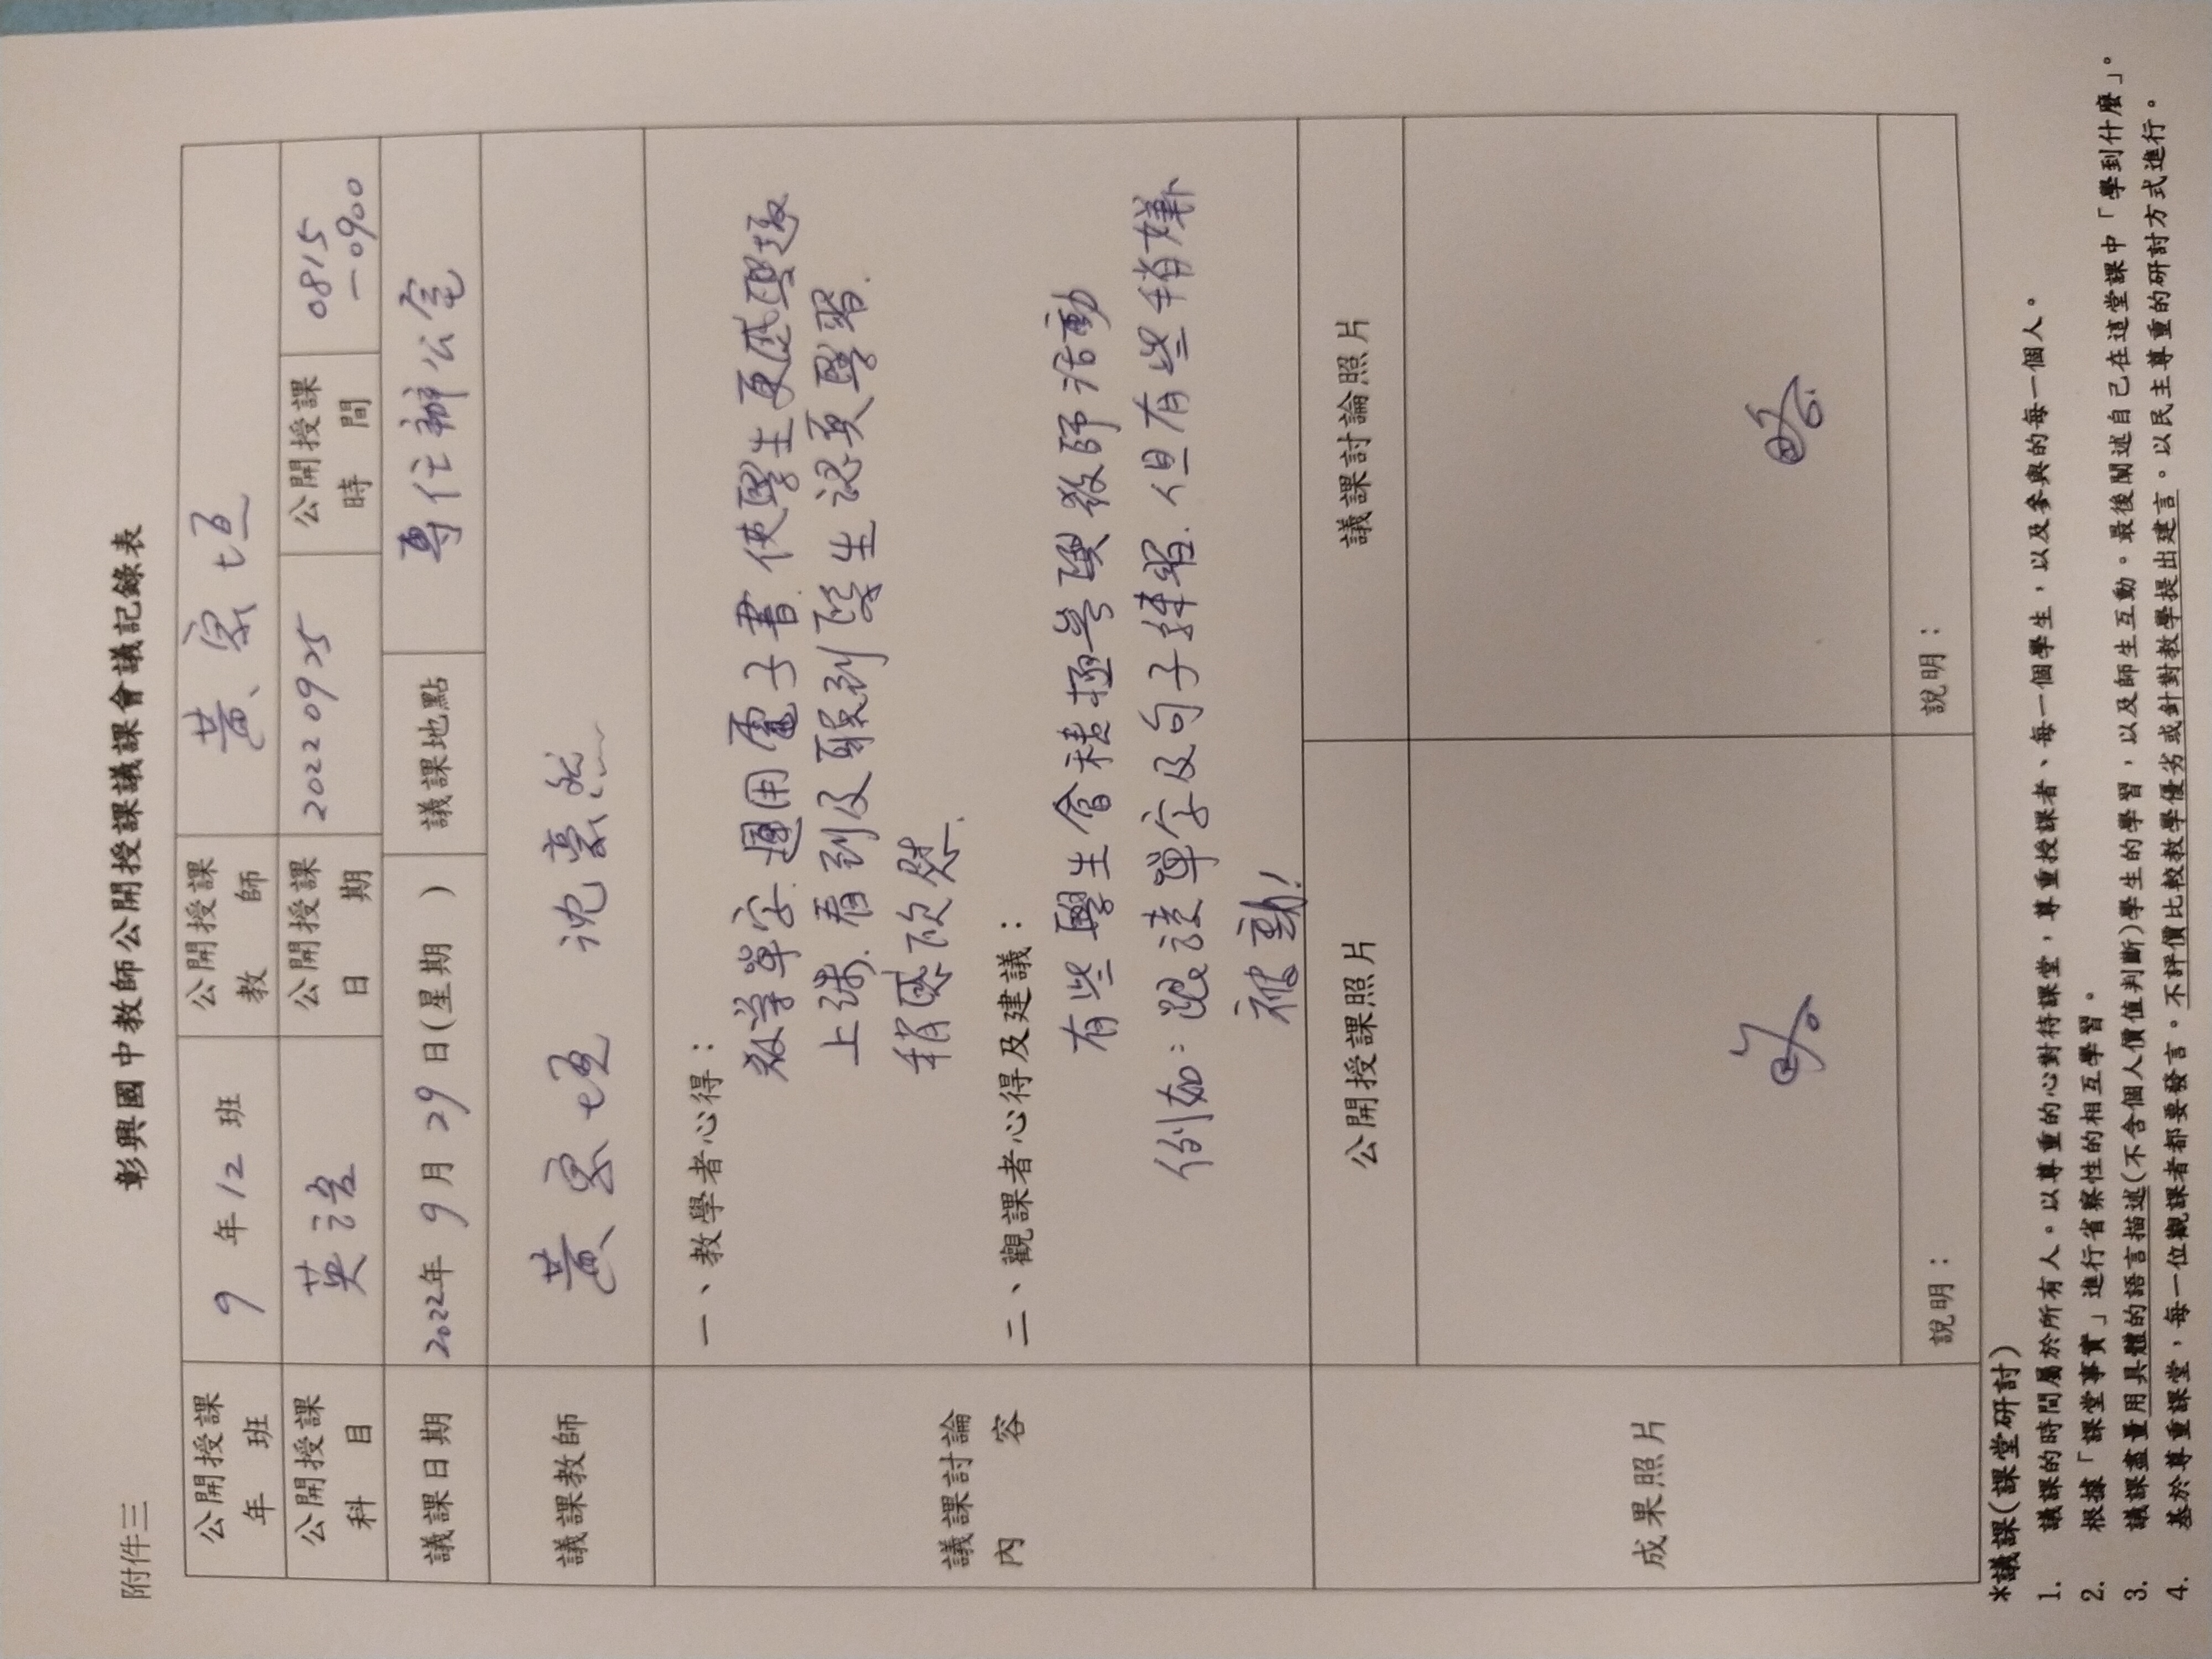 附件三
彰興國中教師公開授課議課會議記錄表
公開授課年班 9 年 12 班 公開授課教師 黃
公開授課科目 英語 公開授課日期 20220925 公開授課時間 0815-0900
議課日期 2022年 9 月 29 日(星期 ) 議課地點 專任辦公室
議課教師 黃 沈豪然
議課討論內容
一、教學者心得：
教學單字.運用電子書.使學生更感學趣
上課.看到及聽到學生認真學習.
稍感欣慰.
二、觀課者心得及建議：
有些學生會積極參與教師活動
例如:跟讀單字及句子練習.但有些稍嫌
被動!
成果照片
公開授課照片 議課討論照片
略 略
說明： 說明：
*議課(課堂研討)
1. 議課的時間屬於所有人。以尊重的心對待課堂，尊重授課者、每一個學生，以及參與的每一個人。
2. 根據「課堂事實」進行省察性的相互學習。
3. 議課盡量用具體的語言描述(不含個人價值判斷)學生的學習，以及師生互動。最後闡述自己在這堂課中「學到什麼」。
4. 基於尊重課堂，每一位觀課者都要發言。不評價比較教學優劣或針對教學提出建言。以民主尊重的研討方式進行。